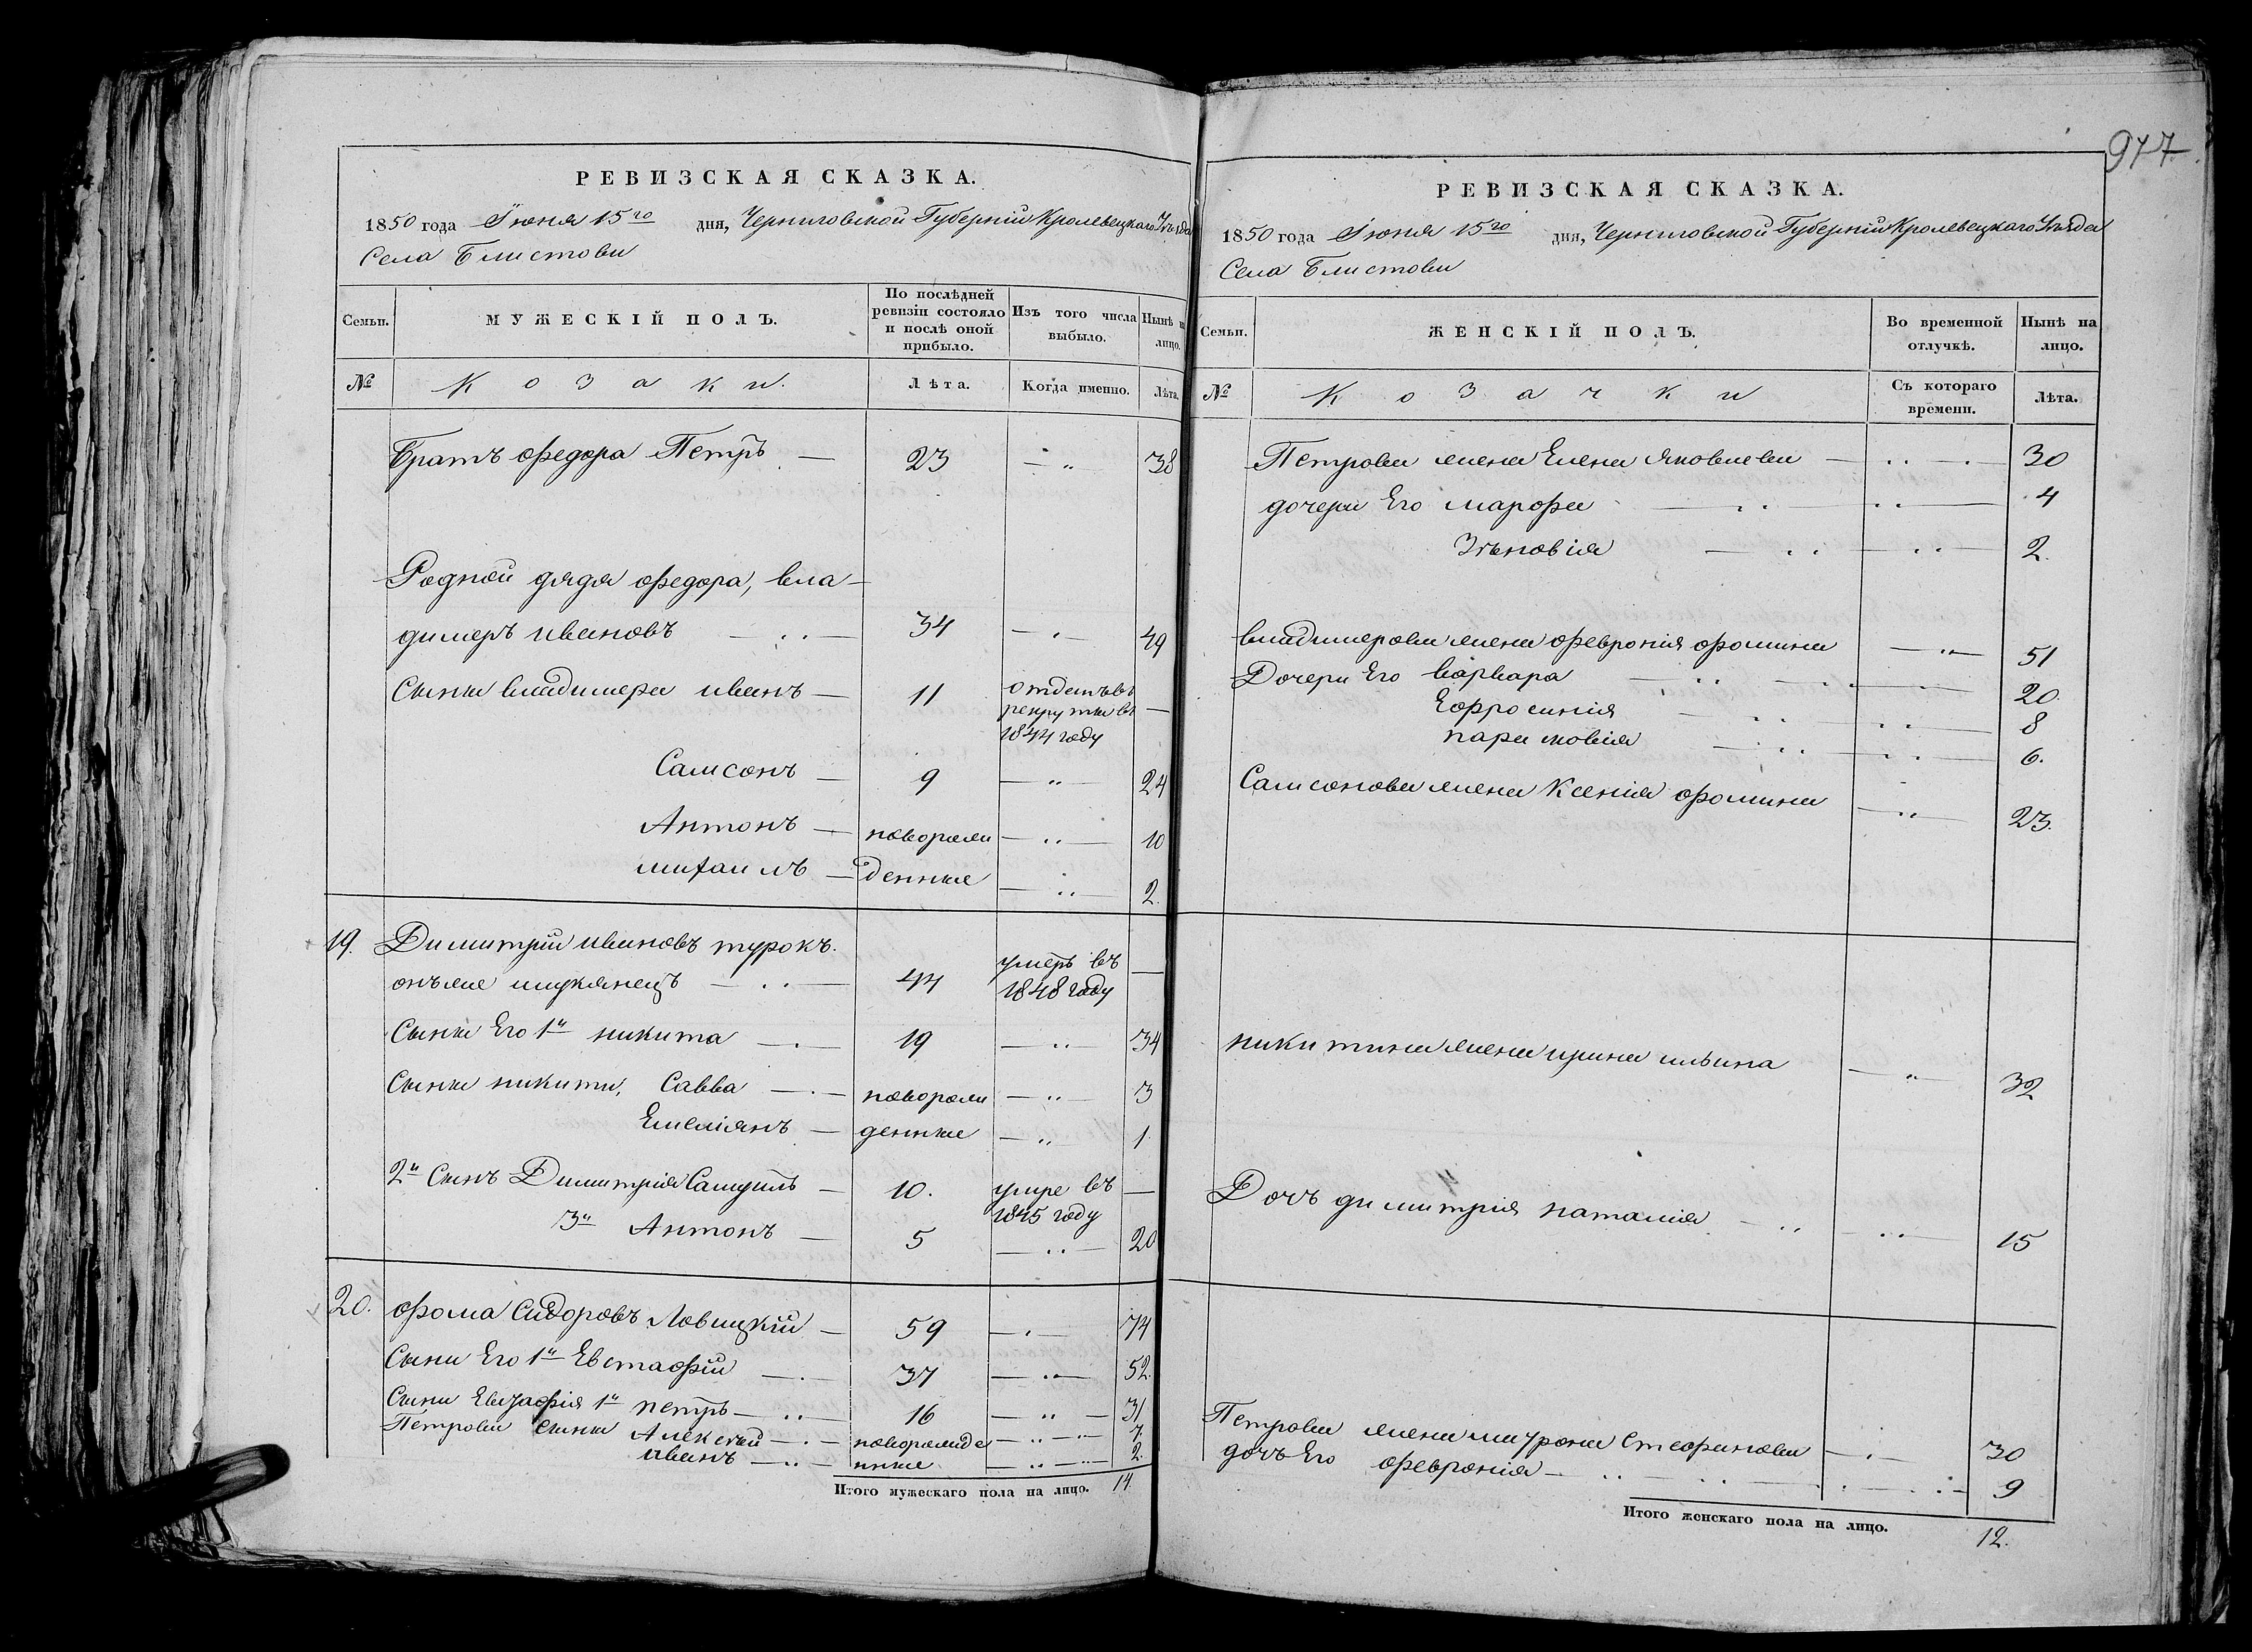 977.
РЕВИЗСКАЯ СКАЗКА.
1850 года Іюня 15го дня, Черниговской Губерніи Кролевецкаго Уѣзда
Села Блистови
Семьи. МУЖЕСКІЙ ПОЛЪ. По послѣдней ревизіи состояло и послѣ оной прибыло. Изъ того числа выбыло. Нынѣ на лицо.
№ Козаки. Лѣта. Когда именно. Лѣта.
Братъ Федора Петръ — 23 — " 38
Родной дядя Федора, Вла-
димеръ Ивановъ — 34 — 49
Сыны Владимера Иванъ — 11 отданъ въ рекруты въ 1844 году —
Самсонъ — 9 — " 24
Антонъ — новорож — 10
Михаилъ — денные — 2.
19. Димитрій Ивановъ Турокъ.
онъже Шуклянецъ — 44 умеръ въ 1848 году —
Сыны Его 1й Никита — 19 — 34
Сыны Никиты, Савва — новорож — 3
Емеліянъ — денные — 1.
2й Сынъ Димитрія Самуилъ — 10. умре въ 1845 году —
3й Антонъ — 5 — 20
20. Фома Сидоровъ Ловицкій — 59 — 74
Сыны Его 1й Евстафій — 37 — 52.
Сыны Евстафія 1й Петръ — 16 — " — 31
Петровы сыны Алексѣй — новорожде — 7.
Иванъ — нные — 2.
Итого мужескаго пола на лицо. 14.
РЕВИЗСКАЯ СКАЗКА.
1850 года Іюня 15го дня, Черниговской Губерніи Кролевецкаго Уѣзда
Села Блистови
Семьи. ЖЕНСКІЙ ПОЛЪ. Во временной отлучкѣ. Нынѣ на лицо.
№ Козачки Съ котораго времени. Лѣта.
Петрова жена Елена Яковлева — 30
дочери Его Марфа — 4
Зѣновія — 2.
Владимерова жена Феврония Фомина — " 51
Дочери Его Варвара — 20.
Ефросинія — 8
Параковія — 6.
Самсонова жена Ксенія Фомина — 23.
Никитина жена Ирина Ильина — " 32
Дочъ Димитрія Наталія — 15
Петрова жена Мотрона Стефанова — 30
дочъ Его Февронія — 9
Итого женскаго пола на лицо. 12.